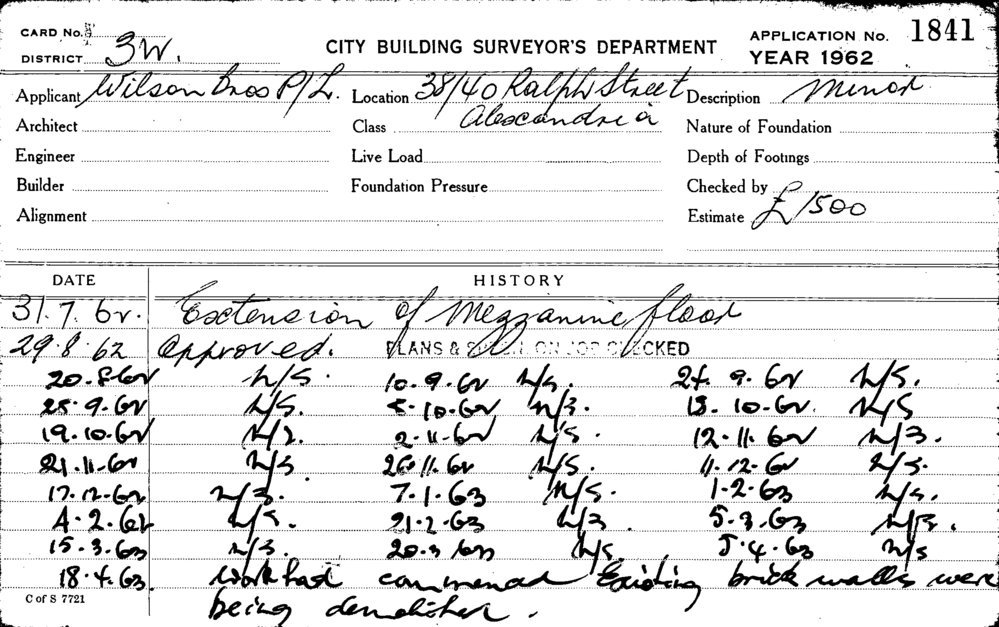 CARD No.
DISTRICT 3W.
CITY BUILDING SURVEYOR'S DEPARTMENT
APPLICATION No. 1841
YEAR 1962
Applicant Wilson Bros P/L. Location 38/40 Ralph Street Description Minor
Architect Class Alexandria Nature of Foundation
Engineer Live Load Depth of Footings
Builder Foundation Pressure Checked by
Alignment Estimate £1500
DATE HISTORY
31.7.62. Extension of Mezzanine floor
29.8.62 Approved. PLANS & ON JOB CHECKED
20.8.62 N/S. 10.9.62 N/S. 9.62 N/S.
25.9.62 N/S. 10.62 N/S. 10.62. N/S
19.10.62 N/S. 2.11.62 N/S. 12.11.62 N/S.
21.11.62 N/S 26.11.62 N/S. 11.12.62 N/S.
17.12.62 N/S. 7.1.63 N/S. 1.2.63 N/S.
4.2.62 N/S. 21.2.63 N/S 5.3.63 N/S.
15.3.63 N/S. 20.3.63 N/S. 5.4.63 N/S
18.4.63. Work had commenced Existing brick walls were
being demolished.
C of S 7721